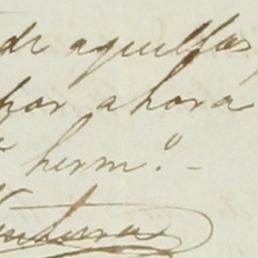 de aquellas
por ahora
herm.º
Ventura